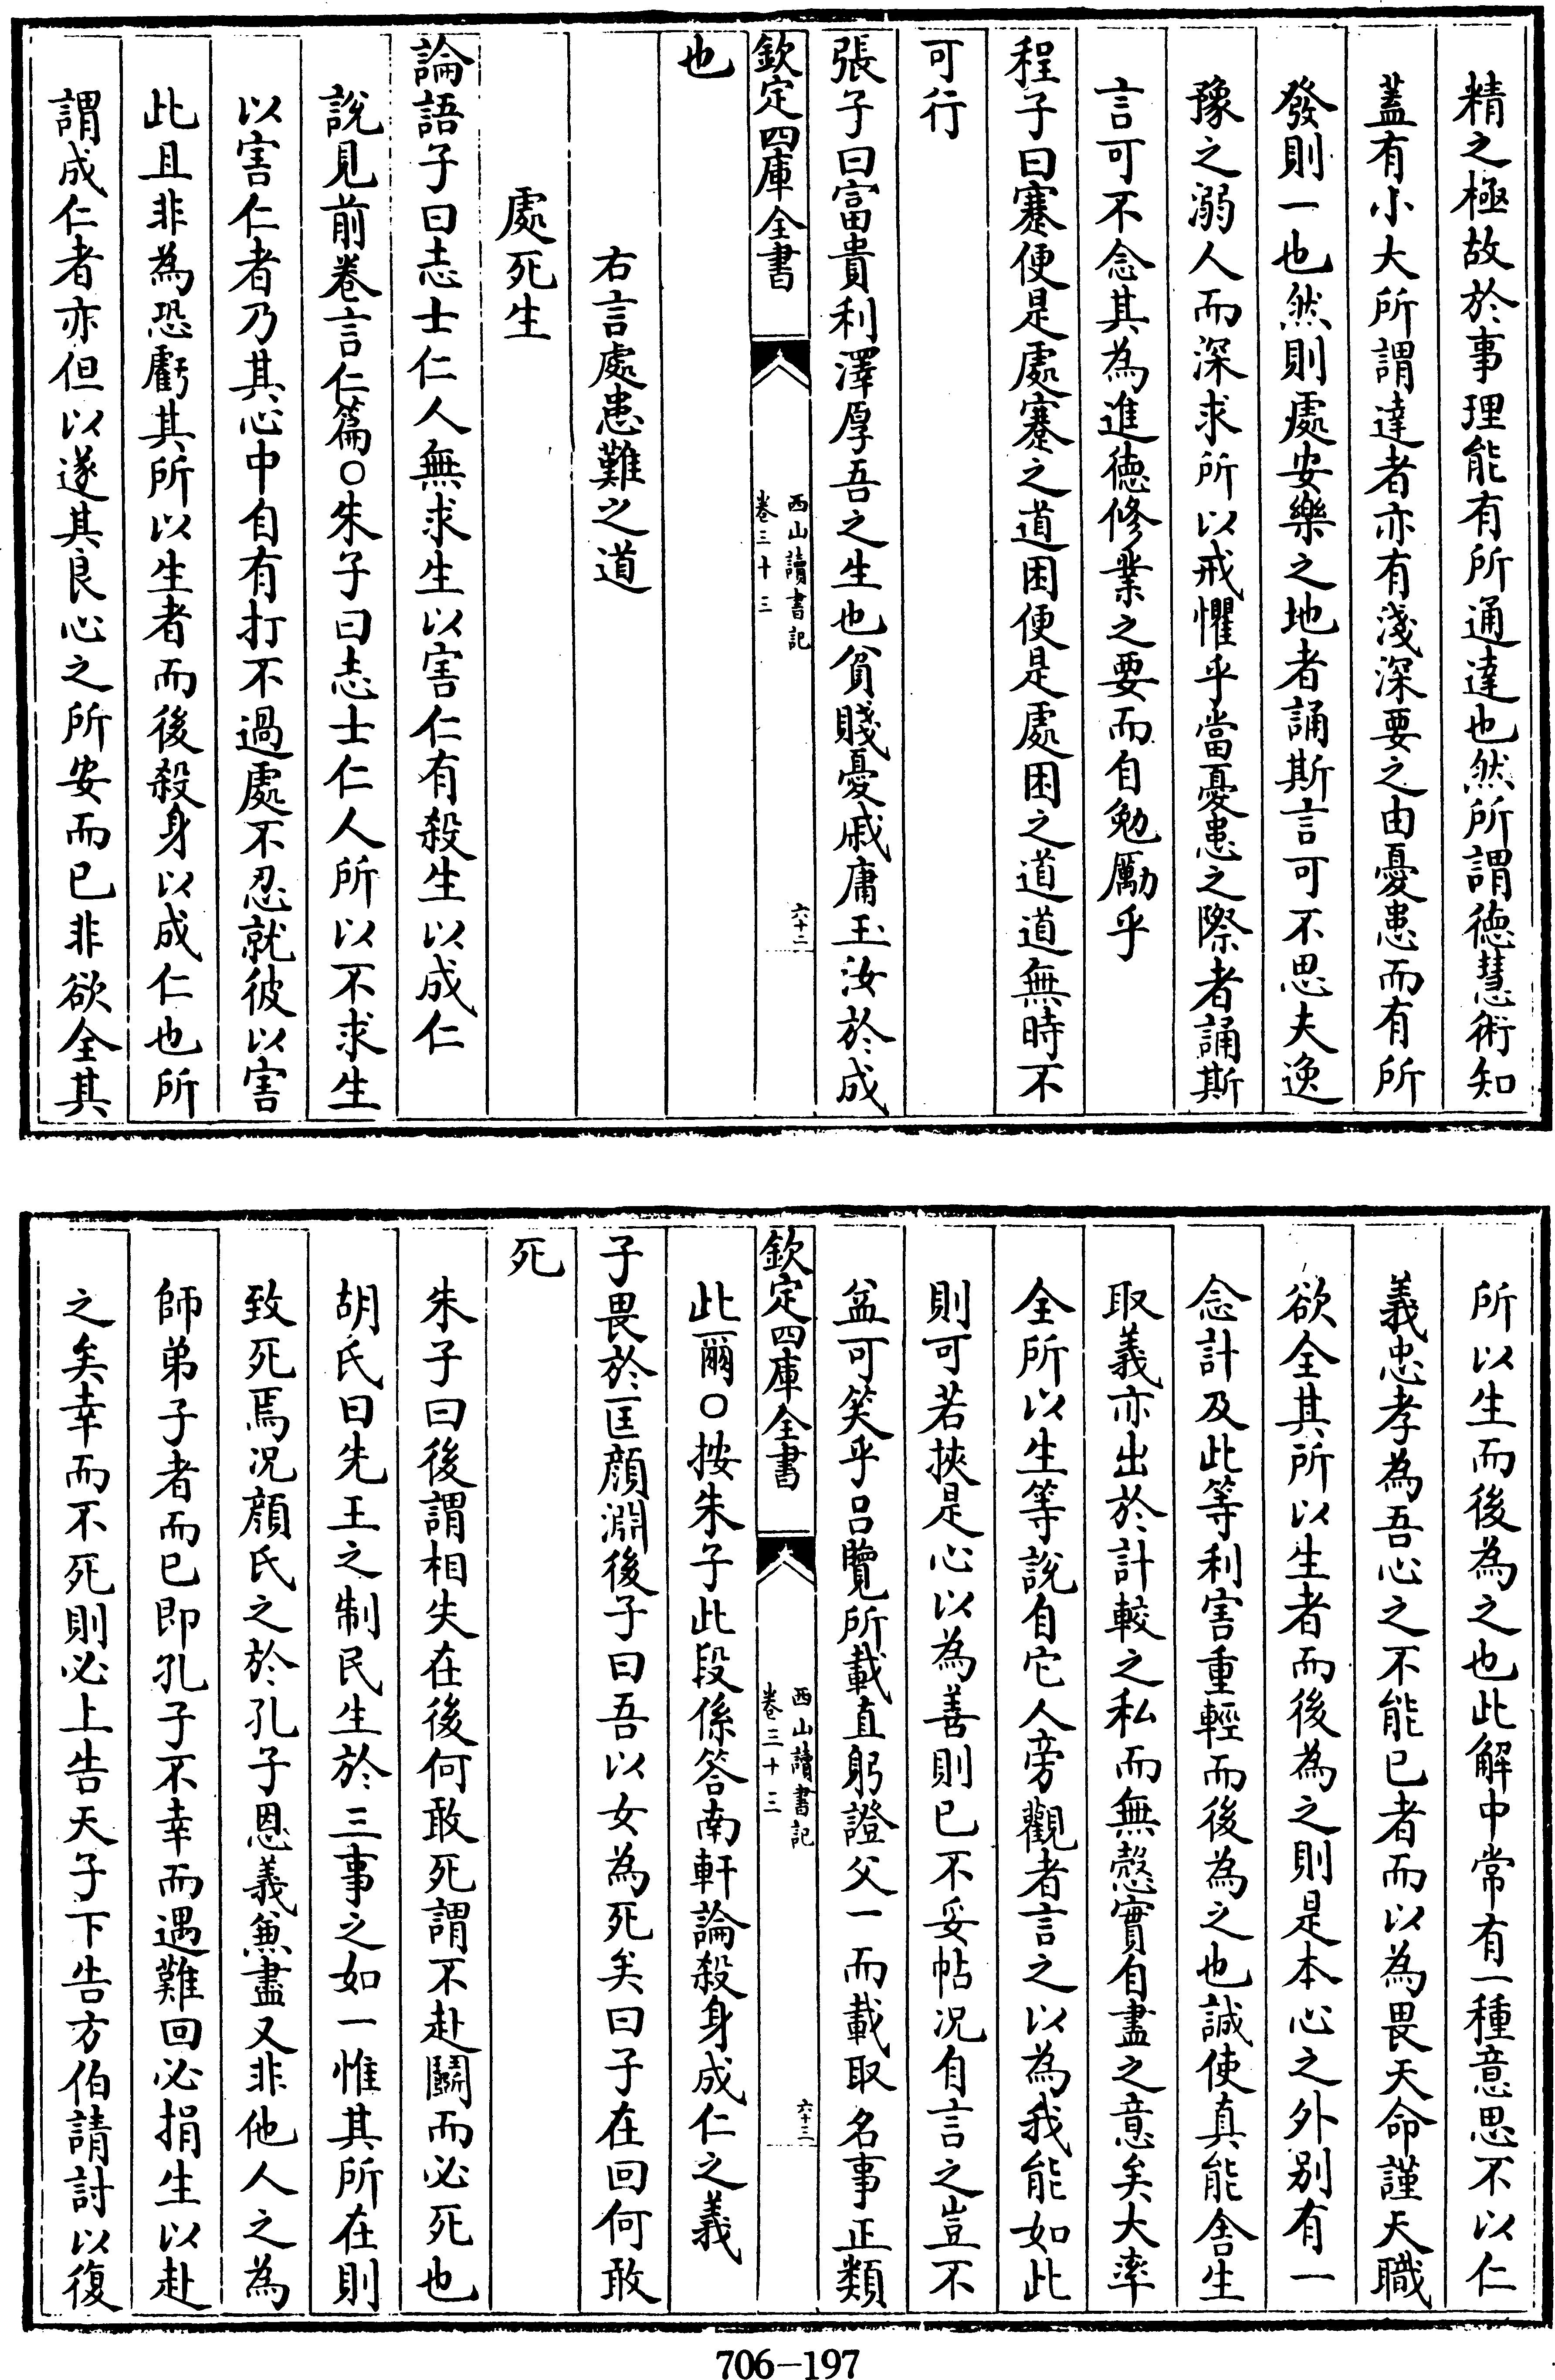 精之極故於事理能有所通達也然所謂德慧術知
蓋有小大所謂達者亦有淺深要之由憂患而有所
發則一也然則處安樂之地者誦斯言可不思夫逸
豫之溺人而深求所以戒懼乎當憂患之際者誦斯
言可不念其為進德修業之要而自勉勵乎
程子曰蹇便是處蹇之道困便是處困之道道無時不
可行
張子曰富貴利澤厚吾之生也貧賤憂戚庸玉汝於成
欽定四庫全書
西山讀書記
卷三十三
六十二
也
右言處患難之道
處死生
論語子曰志士仁人無求生以害仁有殺生以成仁
說見前卷言仁篇○朱子曰志士仁人所以不求生
以害仁者乃其心中自有打不過處不忍就彼以害
此且非為恐虧其所以生者而後殺身以成仁也所
謂成仁者亦但以遂其良心之所安而已非欲全其
所以生而後為之也此解中常有一種意思不以仁
義忠孝為吾心之不能已者而以為畏天命謹天職
欲全其所以生者而後為之則是本心之外別有一
念計及此等利害重輕而後為之也誠使真能舍生
取義亦出於計較之私而無慤實自盡之意矣大率
全所以生等說自它人旁觀者言之以為我能如此
則可若挾是心以為善則已不妥帖况自言之豈不
益可笑乎呂覽所載直躬證父一而載取名事正類
欽定四庫全書
西山讀書記
卷三十三
六十三
此爾○按朱子此段係答南軒論殺身成仁之義
子畏於匡顏淵後子曰吾以女為死矣曰子在回何敢
死
朱子曰後謂相失在後何敢死謂不赴鬭而必死也
胡氏曰先王之制民生於三事之如一惟其所在則
致死焉况顏氏之於孔子恩義兼盡又非他人之為
師弟子者而已即孔子不幸而遇難回必捐生以赴
之矣幸而不死則必上告天子下告方伯請討以復
706-197